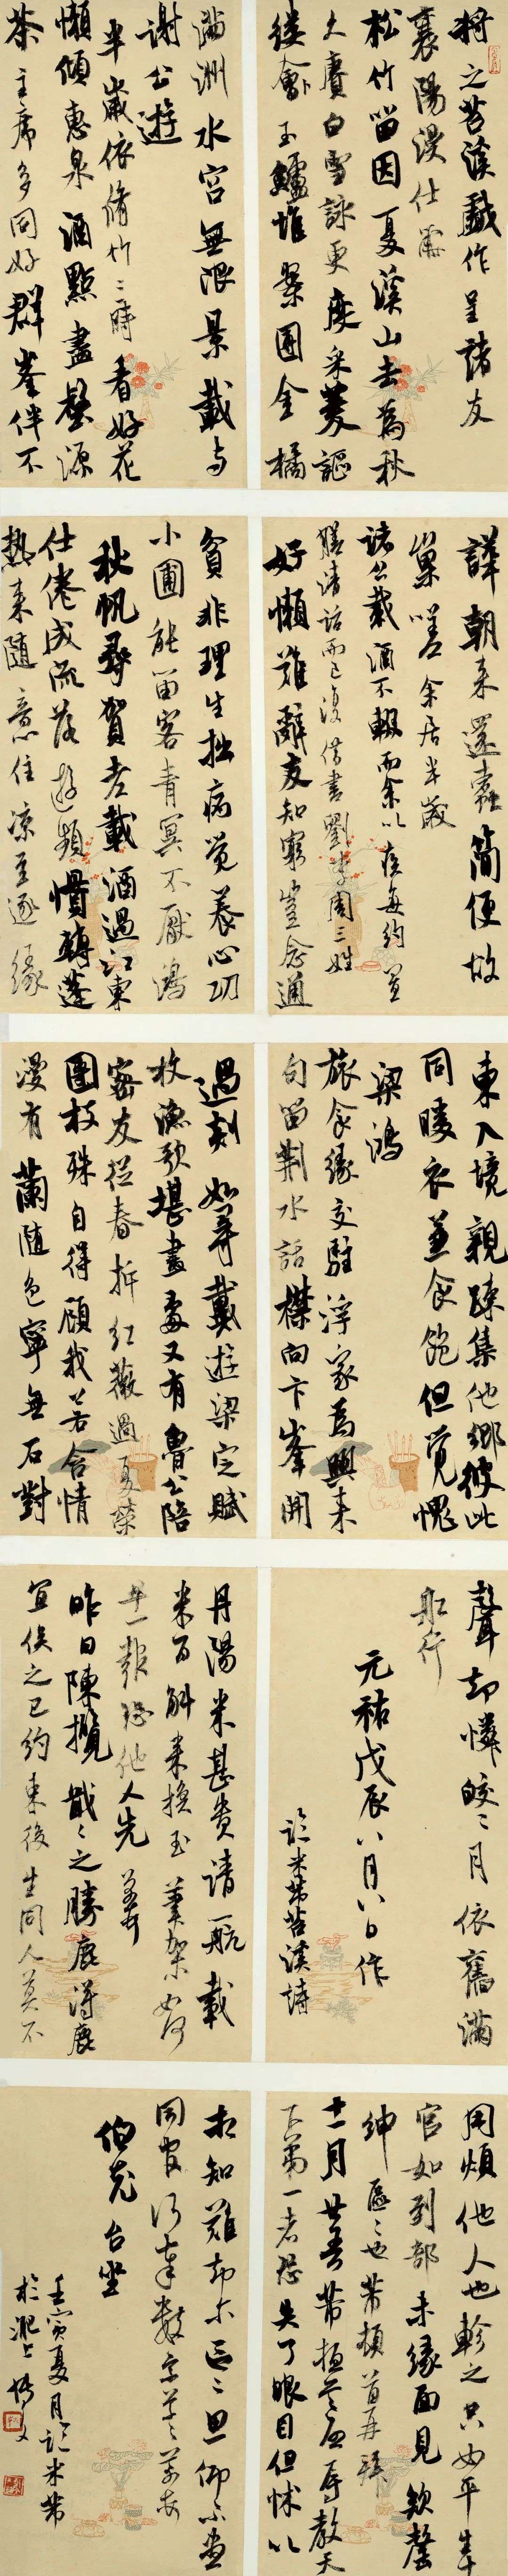 將之苕溪戲作呈諸友
襄陽漫仕黻
松竹留因夏溪山去為秋
久賡白雪詠更度采菱謳
縷會玉鱸堆案團金橘
滿洲水宮無限景載与
謝公遊
半歲依脩竹三時看好花
懶傾惠泉酒點盡壑源
茶主席多同好群峯伴不
譁朝来還蠹簡便故
巢嗟余居半歲
諸公載酒不輟而余以疾每約置
膳清話而已復借書劉李周三姓
好懶難辭友知窮豈念通
貧非理生拙病覺養心功
小圃能留客青冥不厭鴻
秋帆尋賀老載酒過江東
仕倦成流落遊頻慣轉蓬
熱来隨意住凉至逐緣
東入境親踈集他鄉彼此
同暖衣兼食飽但覺愧
梁鴻
旅食緣交駐浮家為興来
句留荆水話襟向卞峯開
過剡如尋戴遊梁定賦
枚漁歌堪畫處又有魯公陪
密友從春拆紅薇過夏榮
團枝殊自得顧我若含情
漫有蘭隨色寧無石對
聲却憐皎皎月依舊滿
舡行
元祐戊辰八月八日作
記米芾苕溪詩
丹陽米甚貴請一航載
米百斛来換玉筆架如何
早一報恐他人先芾
昨日陳攬戢戢之勝鹿得鹿
宜俟之已約束後生同人莫不
用煩他人也軫之只如平生
官如到部未緣面見欽罄
紳區區也芾頓首再拜
十一月廿五芾辱教天
下第一者恐失了眼目但怵以
相知難却尔區區思仰不盡
同官行奉數字草草
伯充台坐
壬寅夏月記米芾
於淝上